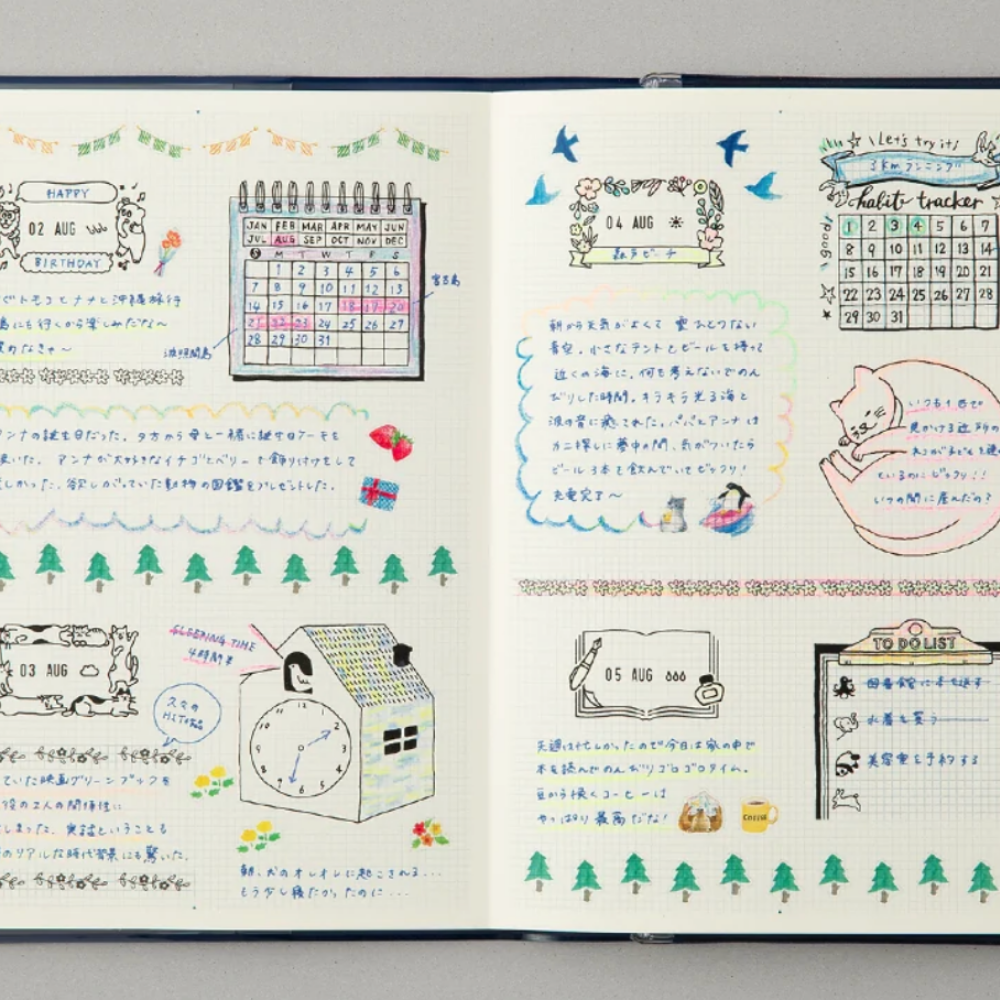 HAPPY
02 AUG
BIRTHDAY
トモコとナナと沖縄旅行
島にも行くから楽しみだな〜
JAN FEB MAR APR MAY JUN
JUL AUG SEP OCT NOV DEC
S M T W T F S
1 2 3 4 5 6
7 8 9 10 11 12 13
14 15 16 17 18 19 20
21 22 23 24 25 26 27
28 29 30 31
宮古島
波照間島
アンナの誕生日だった。夕方から母と一緒に誕生日ケーキを
焼いた。アンナが大好きなイチゴとベリーで飾り付けをして
しかった。欲しがっていた動物の図鑑をプレゼントした。
03 AUG
SLEEPING TIME
4時間半
スマの
ていた映画グリーンブックを
役の2人の関係性に
しまった。実話ということも
のリアルな時代背景にも驚いた。
12 1 2 3 4 5 6 7 8 9 10 11
朝、犬のオレオに起こされる...
もう少し寝たかったのに...
04 AUG
森戸ビーチ
朝から天気がよくて 雲ひとつない
青空。小さなテントとビールを持って
近くの海に。何も考えないでのん
びりした時間。キラキラ光る海と
波の音に癒された。パパとアンナは
カニ探しに夢中の間、気がついたら
ビール3本を飲んでいてビックリ!
充電完了〜
Let's try it!
3kmランニング
habit tracker
good!
1 2 3 4 5 6 7
8 9 10 11 12 13 14
15 16 17 18 19 20 21
22 23 24 25 26 27 28
29 30 31
いつも1匹で
見かける近所の
ネコが子どもを連
ているのにビックリ!!
いつの間に産んだの?
05 AUG
先週は忙しかったので今日は家の中で
本を読んでのんびりゴロゴロタイム。
豆から挽くコーヒーは
やっぱり最高だな!
COFFEE
TO DO LIST
図書館に本を返す
水着を買う
美容室を予約する